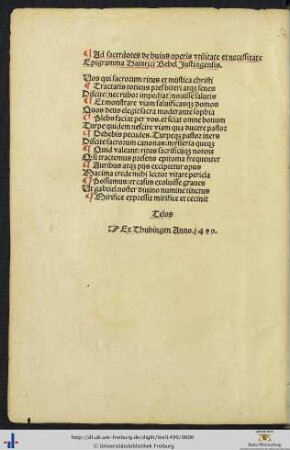 Ad sacerdotes de huius operis vtilitate et necessitate
Epigramma Hainrici Bebel Justingensis.
Vos qui sacrorum ritus et mistica christi
Tractatis totiens presbiteri atqz senes
Discite: nec rubor impediat: nouisse salutis
Et monstrare viam saluificasqz domos
Quos deus elegit sacra moderante sophia
Plebs faciat per vos. et sciat omne bonum
Turpe quidem nescire viam qua ducere pastor
Debebis pecudes. Turpeqz pastor iners
Discite sacrorum canonas: mysteria queqz
Quid valeant: ritus sacrificiiqz notens
Qui tractemus presens epitoma frequenter
Auribus atqz piis excipietur opus
Maxima crede mihi lector vitare pericla
Possumus: et casus exoluisse graues
Ut gabriel noster diuino numine tinctus
Mirifice expressit mirifice et cecinit
Telos
Ex Thubingen Anno. 1499.
http://dl.ub.uni-freiburg.de/diglit/biel1499/0008
© Universitätsbibliothek Freiburg
Baden-Württemberg